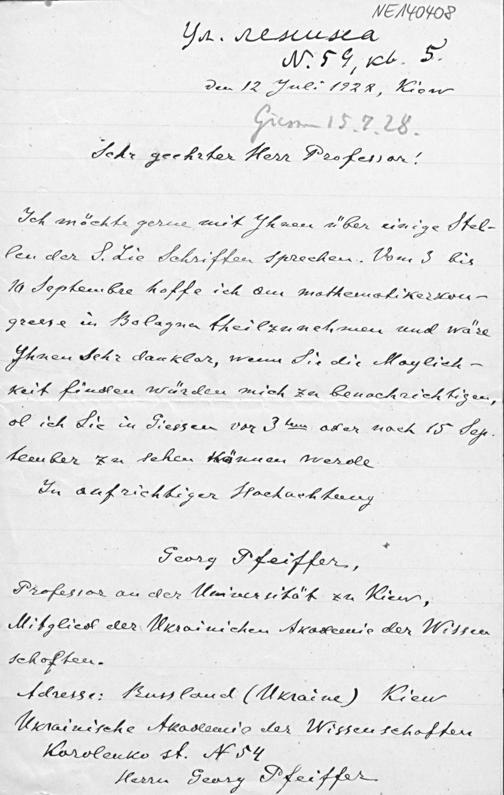 NE140408
Ул. Ленина
N. 54, кв. 5.
den 12 Juli 1928, Kiew
Giessen 15.7.28.
Sehr geehrter Herr Professor!
Ich möchte gerne mit Ihnen über einige Stel-
len der S. Lie Schriften sprechen. Vom 3 bis
10 Septembre hoffe ich am mathematikerkon-
greese in Bolagna theilzunehmen und wäre
Ihnen Sehr dankbar, wenn Sie die Moglich-
keit finden würden mich zu benachrichtigen,
ob ich Sie in Giessen vor 3 oder nach 15 Sep-
tember zu sehen können werde
In aufrichtiger Hochachtung
Georg Pfeiffer,
Professor an der Universität zu Kiew,
Mitglied der Ukrainichen Akademie der Wissen
schaften.
Adresse: Russland (Ukraine) Kiew
Ukrainische Akademie der Wissenschaften
Korolenko st. N 54
Herrn Georg Pfeiffer